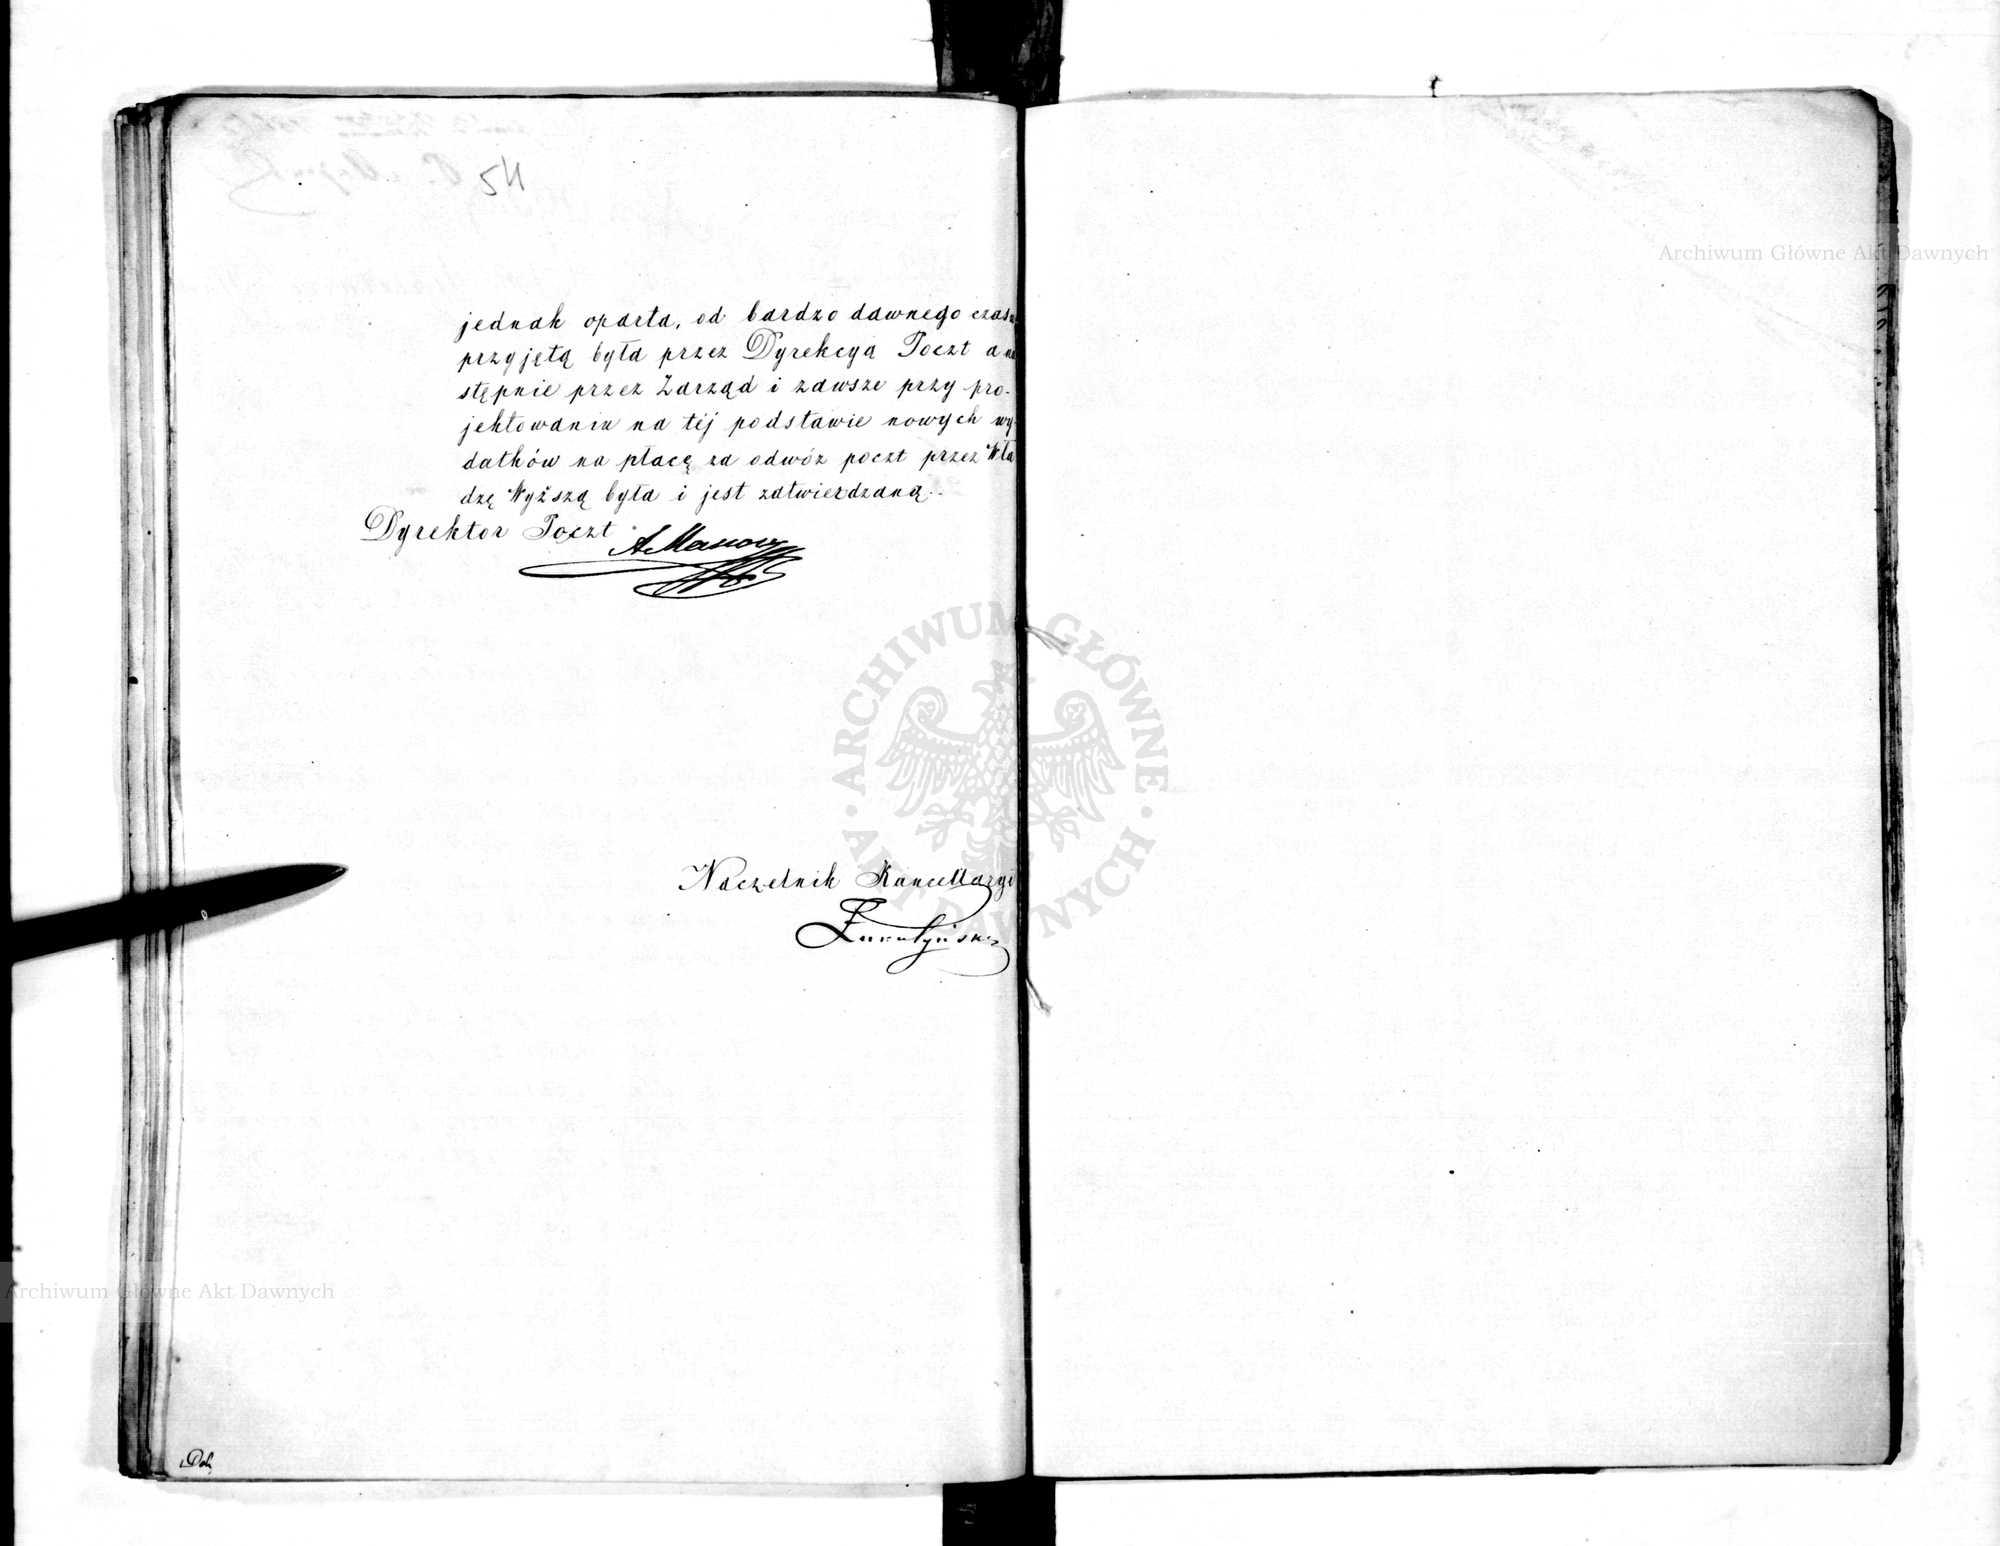 54
jednak oparta, od bardzo dawnego czasu
przyjętą była przez Dyrekcyą Poczt a na
stępnie przez Zarząd i zawsze przy pro-
jektowaniu na téj podstawie nowych wy-
datków na płacę za odwóz poczt przez Wła
dzę Wyższą była i jest zatwierdzaną.
Dyrektor Poczt
Naczelnik Kancellaryi
Archiwum Główne Akt Dawnych
ARCHIWUM GŁÓWNE AKT DAWNYCH
Archiwum Główne Akt Dawnych